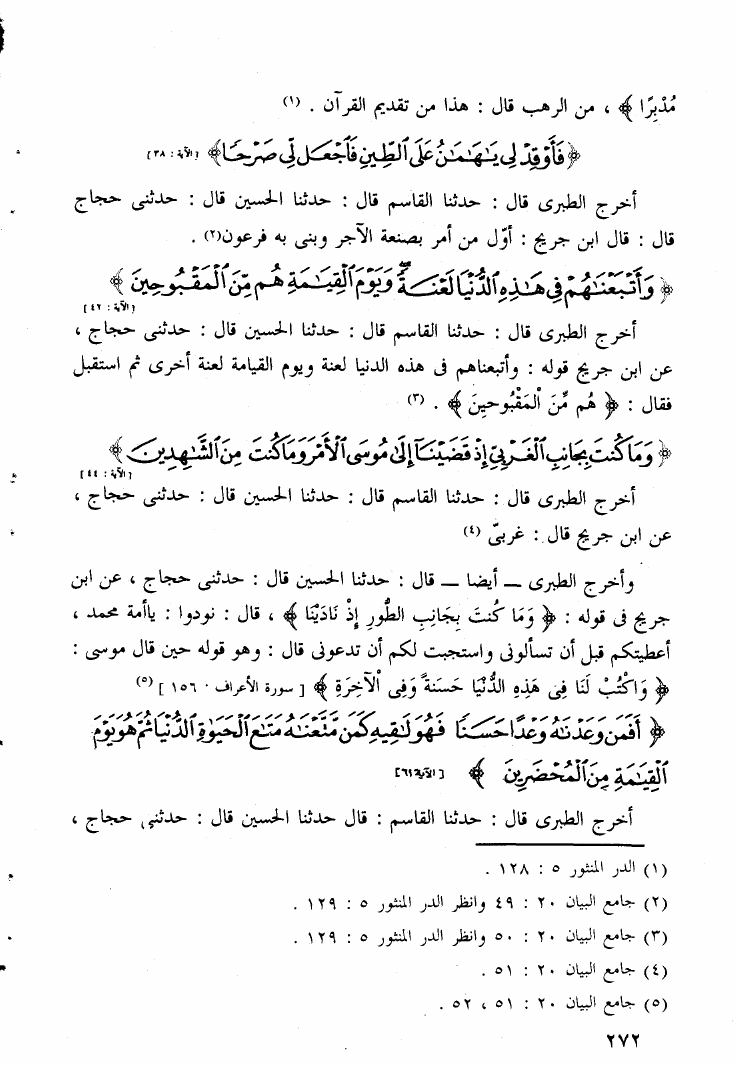 مُدْبِرًا ﴾ ، من الرهب قال : هذا من تقديم القرآن . (١)
﴿ فَأَوْقِدْ لِي يَـٰهَـٰمَـٰنُ عَلَى ٱلطِّينِ فَٱجْعَل لِّي صَرْحًا ﴾ [الآية : ٣٨]
أخرج الطبرى قال : حدثنا القاسم قال : حدثنا الحسين قال : حدثنى حجاج
قال : قال ابن جريج : أوّل من أمر بصنعة الآجر وبنى به فرعون(٢) .
﴿ وَأَتْبَعْنَـٰهُمْ فِي هَـٰذِهِ ٱلدُّنْيَا لَعْنَةً وَيَوْمَ ٱلْقِيَـٰمَةِ هُم مِّنَ ٱلْمَقْبُوحِينَ ﴾
[الآية : ٤٢]
أخرج الطبرى قال : حدثنا القاسم قال : حدثنا الحسين قال : حدثنى حجاج ،
عن ابن جريج قوله : وأتبعناهم فى هذه الدنيا لعنة ويوم القيامة لعنة أخرى ثم استقبل
فقال : ﴿ هُم مِّنَ ٱلْمَقْبُوحِينَ ﴾ . (٣)
﴿ وَمَا كُنتَ بِجَانِبِ ٱلْغَرْبِيِّ إِذْ قَضَيْنَآ إِلَىٰ مُوسَى ٱلْأَمْرَ وَمَا كُنتَ مِنَ ٱلشَّـٰهِدِينَ ﴾
[الآية : ٤٤]
أخرج الطبرى قال : حدثنا القاسم قال : حدثنا الحسين قال : حدثنى حجاج ،
عن ابن جريج قال : غربىّ (٤)
وأخرج الطبرى ــ أيضا ــ قال : حدثنا الحسين قال : حدثنى حجاج ، عن ابن
جريج فى قوله : ﴿ وَمَا كُنتَ بِجَانِبِ الطُّورِ إِذْ نَادَيْنَا ﴾ ، قال : نودوا : ياأمة محمد ،
أعطيتكم قبل أن تسألونى واستجبت لكم أن تدعونى قال : وهو قوله حين قال موسى :
﴿ وَاكْتُبْ لَنَا فِى هَذِهِ الدُّنْيَا حَسَنَةً وَفِى ٱلْآخِرَةِ ﴾ [ سورة الأعراف ٠ ١٥٦ ] (٥)
﴿ أَفَمَن وَعَدْنَـٰهُ وَعْدًا حَسَنًا فَهُوَ لَـٰقِيهِ كَمَن مَّتَّعْنَـٰهُ مَتَـٰعَ ٱلْحَيَوٰةِ ٱلدُّنْيَا ثُمَّ هُوَ يَوْمَ
ٱلْقِيَـٰمَةِ مِنَ ٱلْمُحْضَرِينَ ﴾ [الآية ٦١]
أخرج الطبرى قال : حدثنا القاسم : قال حدثنا الحسين قال : حدثنى حجاج ،
(١) الدر المنثور ٥ : ١٢٨ .
(٢) جامع البيان ٢٠ : ٤٩ وانظر الدر المنثور ٥ : ١٢٩ .
(٣) جامع البيان ٢٠ : ٥٠ وانظر الدر المنثور ٥ : ١٢٩ .
(٤) جامع البيان ٢٠ : ٥١ .
(٥) جامع البيان ٢٠ : ٥١ ، ٥٢ .
٢٧٢